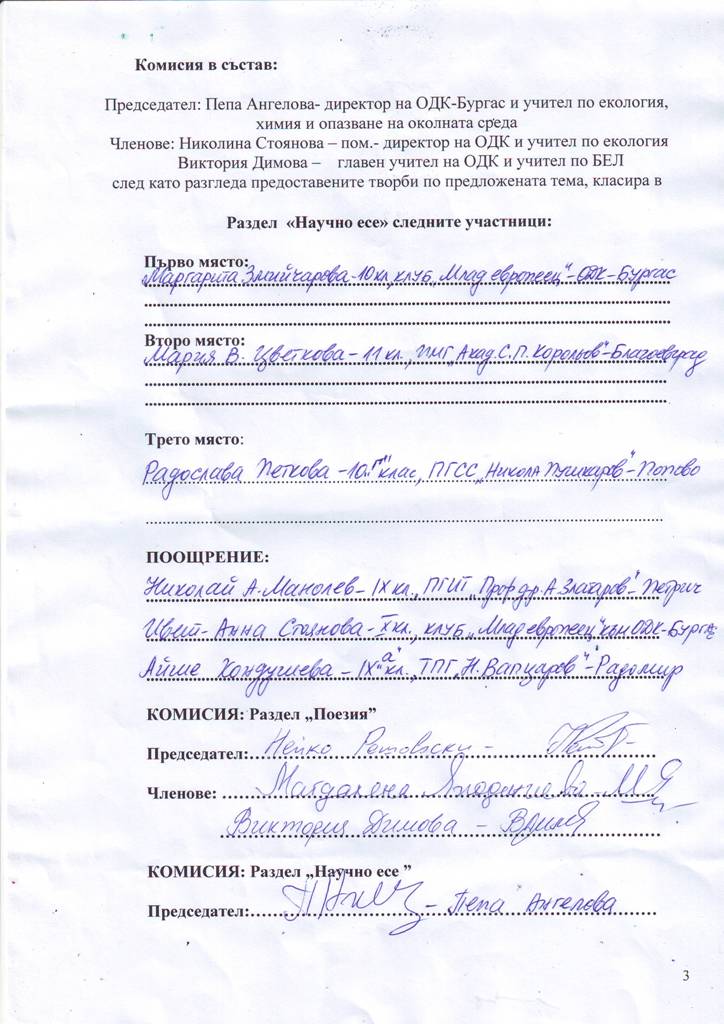 Комисия в състав:
Председател: Пепа Ангелова- директор на ОДК-Бургас и учител по екология,
химия и опазване на околната среда
Членове: Николина Стоянова – пом.- директор на ОДК и учител по екология
Виктория Димова – главен учител на ОДК и учител по БЕЛ
след като разгледа предоставените творби по предложената тема, класира в
Раздел «Научно есе» следните участници:
Първо място:
Маргарита Змийчарова-10 кл., клуб „Млад европеец"-ОДК-Бургас
Второ място:
Мария В. Цветкова-11 кл., ПМГ „Акад. С. П. Корольов"-Благоевград
Трето място:
Радослава Петкова -10."г" клас, ПГСС „Никола Пушкаров"-Попово
ПООЩРЕНИЕ:
Николай А. Манолев-IX кл., "Проф. д-р. А Златаров"-Петрич
Цвет-Анна Стоянова-X кл., клуб „Млад европеец" към ОДК-Бургас
Айше Хондушева-IX"а" кл., ТПГ „Н. Вапцаров"-Радомир
КОМИСИЯ: Раздел „Поезия”
Председател: Нейко
Членове: Магдалена
Виктория Димова -
КОМИСИЯ: Раздел „Научно есе ”
Председател: - Пепа Ангелова
3